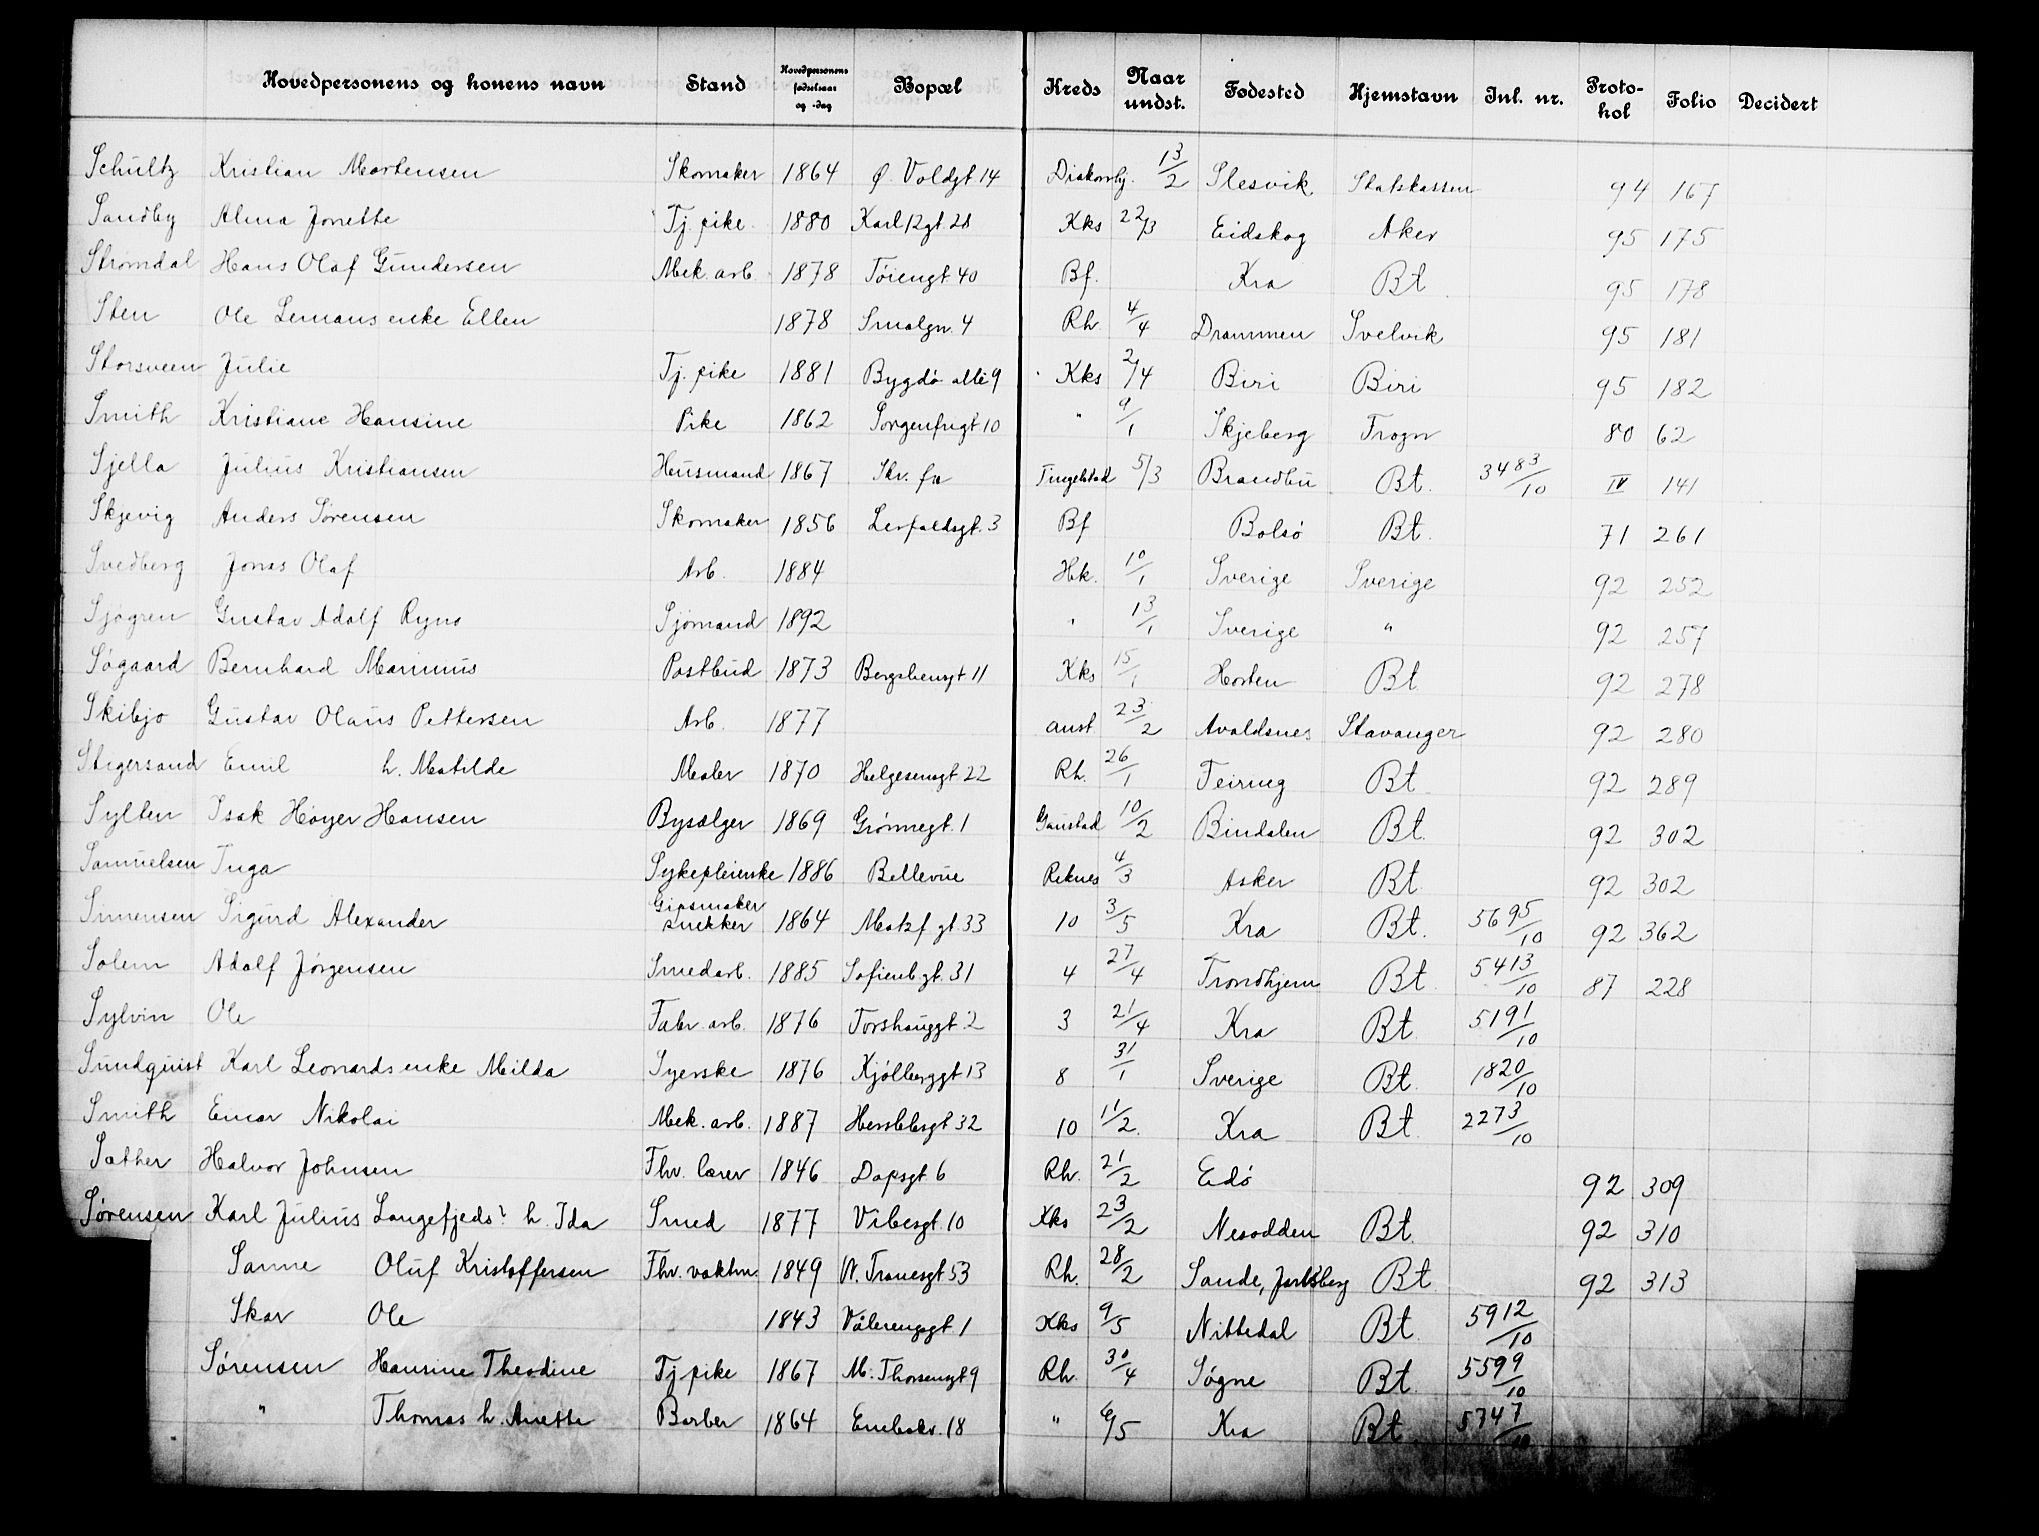 Hovedpersonens og konens navn Stand Hovedpersonens fødselsaar og -dag Bopæl Kreds Naar undst. Fødested Hjemstavn Inl. nr. Protokol Folio Decidert
Schultz Kristian Mortensen Skomaker 1864 Ø. Voldgt 14 Diakonhj. 13/2 Slesvik Statskassen 94 167
Sandby Alma Jonette Tj. pike 1880 Karl 12gt 28 Kks 22/3 Eidskog Aker 95 175
Strømdal Hans Olaf Gundersen Mek. arb. 1878 Tøiengt 40 Bf. Kra Bt 95 178
Sten Ole Lemans enke Ellen 1878 Smalgn. 4 Rh. 4/4 Drammen Svelvik 95 181
Storsveen Julie Tj. pike 1881 Bygdø alle 9 Kks 2/4 Biri Biri 95 182
Smith Kristiane Hansine Pike 1862 Sorgenfrigt 10 " 9/1 Skjeberg Frogn 80 62
Sjella Julius Kristiansen Husmand 1867 Skv. fv Tingelstad 5/3 Brandbu Bt. 3483/10 IV 141
Skjevig Anders Sørensen Skomaker 1856 Lerfaldsgt. 3 Bf Bolsø Bt. 71 261
Svedberg Jonas Olaf Arb. 1884 Hk. 10/1 Sverige Sverige 92 252
Sjøgren Gustav Adolf Ryno Sjømand 1892 " 13/1 Sverige " 92 257
Søgaard Bernhard Marinius Postbud 1873 Bergsliensgt 11 Kks 15/1 Horten Bt 92 278
Skibjo Gustav Olaus Pettersen Arb. 1877 anst 23/2 Avaldsnes Stavanger 92 280
Stigersand Emil h. Matilde Maler 1870 Helgesensgt 22 Rh. 26/1 Feiring Bt 92 289
Sylten Isak Høyer Hansen Bysælger 1869 Grønnegt. 1 Gaustad 10/2 Bindalen Bt. 92 302
Samuelsen Inga Sykepleierske 1886 Bellevue Reknes 4/3 Asker Bt 92 302
Simensen Sigurd Alexander Gipsmaker snekker 1864 Motzf gt. 33 10 3/5 Kra Bt. 5695/10 92 362
Solem Adolf Jørgensen Smedarb. 1885 Sofienbgt. 31 4 27/4 Trondhjem Bt 5413/10 87 228
Sylvin Ole Fabr. arb. 1876 Torshauggt. 2 3 21/4 Kra Bt 5191/10
Sundquist Karl Leonards enke Milda Syerske 1876 Kjølberggt 13 8 31/1 Sverige Bt. 1820/10
Smith Einar Nikolai Mek. arb. 1887 Herslebsgt 32 10 11/2 Kra Bt 2273/10
Sæther Halvor Johnsen Fhv. lærer 1846 Dopsgt 6 Rh. 21/2 Edø 92 309
Sørensen Karl Julius Langefjeds? h. Ida Smed 1877 Vibesgt. 10 Kks 23/2 Nesodden Bt. 92 310
Sanne Oluf Kristoffersen Fhv. voktm 1849 N. Tranesgt 53 Rh. 28/2 Sande, Jarlsberg Bt 92 313
Skar Ole 1843 Vålerenggt 1 Kks 9/5 Nittedal Bt 5912/10
Sørensen Hansine Theodine Tj pike 1867 M. Thorsensgt 9 Rh. 30/4 Søgne Bt. 5599/10
" Thomas h. Anette Barber 1864 Enebakv. 18 " 6/5 Kra Bt 5747/10